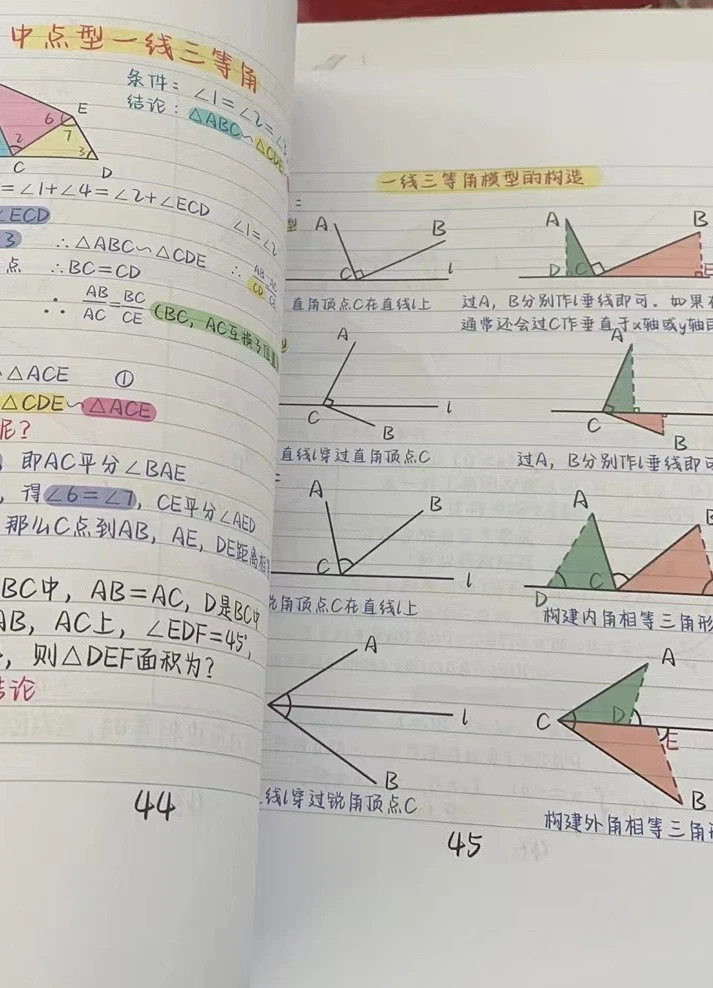 中点型一线三等角
条件：∠1=∠2=∠3
结论：△ABC∽△CDE
6
E
7
2
3
C
D
=∠1+∠4=∠2+∠ECD
∠ECD
∠1=∠2
3
∴△ABC∽△CDE
∴
点 ∴BC=CD
AB/AC=BC/CE
∴
(BC, AC互换
△ACE ①
△CDE∽△ACE
呢？
，即AC平分∠BAE
，得∠6=∠7，CE平分∠AED
那么C点到AB，AE，DE距离相等
BC中，AB=AC，D是BC中
AB，AC上，∠EDF=45°，
，则△DEF面积为？
结论
44
一线三等角模型的构造
A
B
C
l
直角顶点C在直线l上
A
B
D
C
E
过A，B分别作l垂线即可。如果在
通常还会过C作垂直于x轴或y轴
A
C
l
B
直线l穿过直角顶点C
A
C
B
过A，B分别作l垂线即可
A
B
C
l
锐角顶点C在直线l上
A
B
D
C
构建内角相等三角形
A
l
B
线l穿过锐角顶点C
A
C
D
E
B
构建外角相等三角形
45